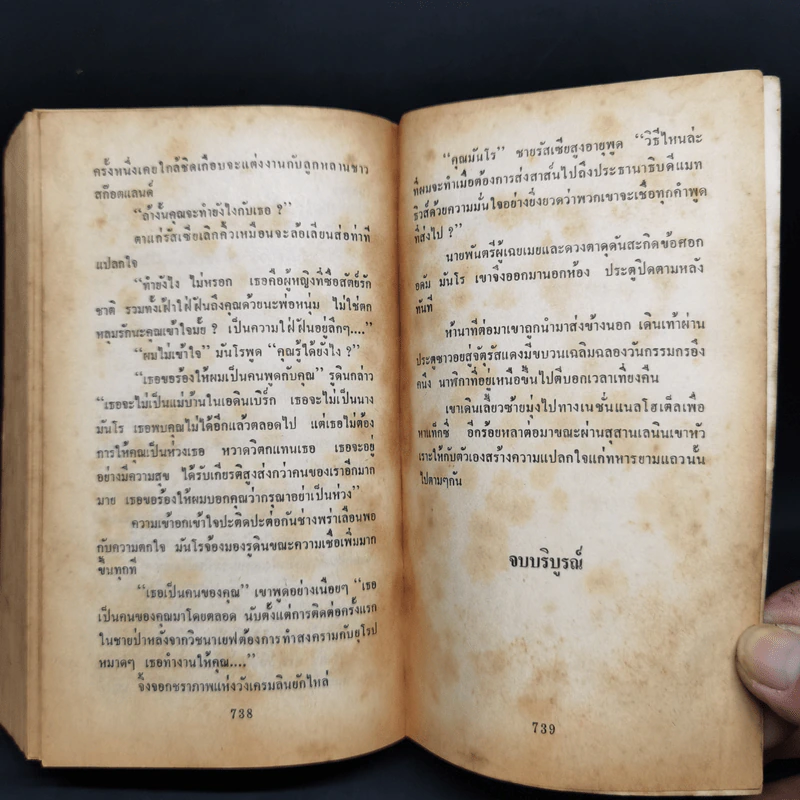 ครั้งหนึ่งเคยใกล้ชิดเกือบจะแต่งงานกับลูกหลานชาว
สก๊อตแลนด์
“ล้างั้นคุณจะทำยังไงกับเธอ ?”
ตาแก่รัสเซียเลิกคิ้วเหมือนจะล้อเลียนส่อท่าที
แปลกใจ
“ทำยังไง ไม่หรอก เธอคือผู้หญิงที่ซื่อสัตย์รัก
ชาติ รวมทั้งเฝ้าใฝ่ฝันถึงคุณด้วยนะพ่อหนุ่ม ไม่ใช่ตก
หลุมรักนะคุณเข้าใจมั้ย ? เป็นความใฝ่ฝันอยู่ลึกๆ....”
“ผมไม่เข้าใจ” มันโรพูด “คุณรู้ได้ยังไง ?”
“เธอขอร้องให้ผมเป็นคนพูดกับคุณ” รูดินกล่าว
“เธอจะไม่เป็นแม่บ้านในเอดินเบิร์ก เธอจะไม่เป็นนาง
มันโร เธอพบคุณไม่ได้อีกแล้วตลอดไป แต่เธอไม่ต้อง
การให้คุณเป็นห่วงเธอ หวาดวิตกแทนเธอ เธอจะอยู่
อย่างมีความสุข ได้รับเกียรติสูงส่งกว่าคนของเราอีกมาก
มาย เธอขอร้องให้ผมบอกคุณว่ากรุณาอย่าเป็นห่วง”
ความเข้าอกเข้าใจปะติดปะต่อกันช่างพร่าเลือนพอ
กับความตกใจ มันโรจ้องมองรูดินขณะความเชื่อเพิ่มมาก
ขึ้นทุกที
“เธอเป็นคนของคุณ” เขาพูดอย่างเนือยๆ “เธอ
เป็นคนของคุณมาโดยตลอด นับตั้งแต่การติดต่อครั้งแรก
ในชายป่าหลังจากวิชนาเยฟต้องการทำสงครามกับยุโรป
หมาดๆ เธอทำงานให้คุณ....”
จิ้งจอกชราภาพแห่งวังเครมลินยักไหล่
738
“คุณมันโร” ชายรัสเซียสูงอายุพูด “วิธีไหนล่ะ
ที่ผมจะทำเมื่อต้องการส่งสาส์นไปถึงประธานาธิบดีแมท
ธิวส์ด้วยความมั่นใจอย่างยิ่งยวดว่าพวกเขาจะเชื่อทุกคำพูด
ที่ส่งไป ?”
นายพันตรีผู้เฉยเมยและดวงตาดุดันสะกิดข้อศอก
อดัม มันโร เขาจึงออกมานอกห้อง ประตูปิดตามหลัง
ทันที
ห้านาทีต่อมาเขาถูกนำมาส่งข้างนอก เดินเท้าผ่าน
ประตูชาวอยสู่จัตุรัสแดงมีขบวนเฉลิมฉลองวันกรรมกรอึง
คนึง นาฬิกาที่อยู่เหนือขึ้นไปตีบอกเวลาเที่ยงคืน
เขาเดินเลี้ยวซ้ายมุ่งไปทางเนชั่นแนลโฮเต็ลเพื่อ
หาแท็กซี่ อีกร้อยหลาต่อมาขณะผ่านสุสานเลนินเขาหัว
เราะให้กับตัวเองสร้างความแปลกใจแก่ทหารยามแถวนั้น
ไปตามๆกัน
จบบริบูรณ์
739